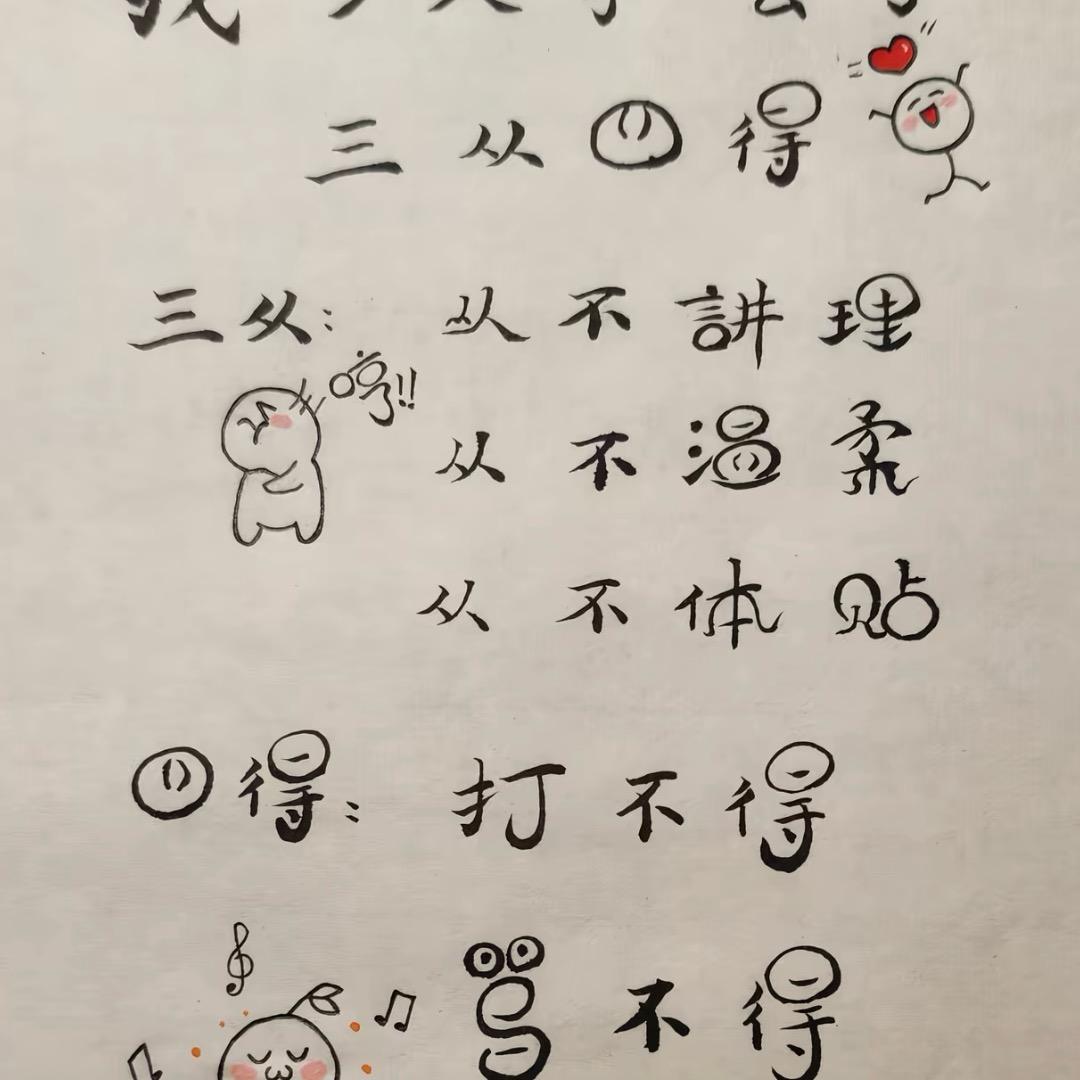 三从四得
三从：从不讲理
哼!!
从不温柔
从不体贴
四得：打不得
骂不得